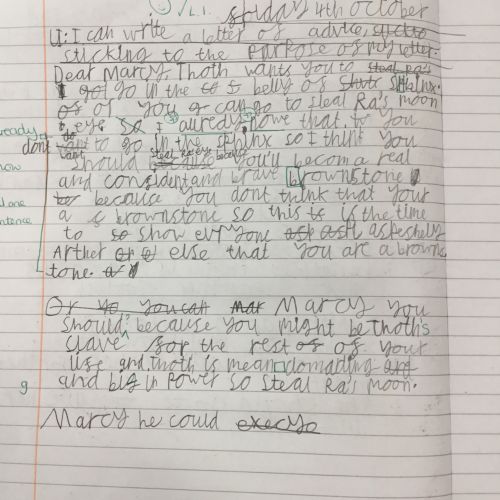 L.I. Friday 4th October
LI: I can write a letter of advice,
sticking to the purpose of my letter.
Dear Marcy, Thoth wants you to steal Ra's
go in the belly of sphinx.
of you can go to steal Ra's moon
eye so I auredy nowe that to you
dont want to go in the sphinx so I think you
should steal ra's eye because you'll becom a real
and considentand brave brownstone
to because you dont think that your
a brownstone so this is the time
to so show evryone aspeshelly
Arther or else that you are a browns
tone.
Or yo you call Mar Marcy you
should, because you might be Thoth's
slave for the rest of of your
life and Thoth is mean domanding
and big in power so steal Ra's moon.
g
Marcy he could